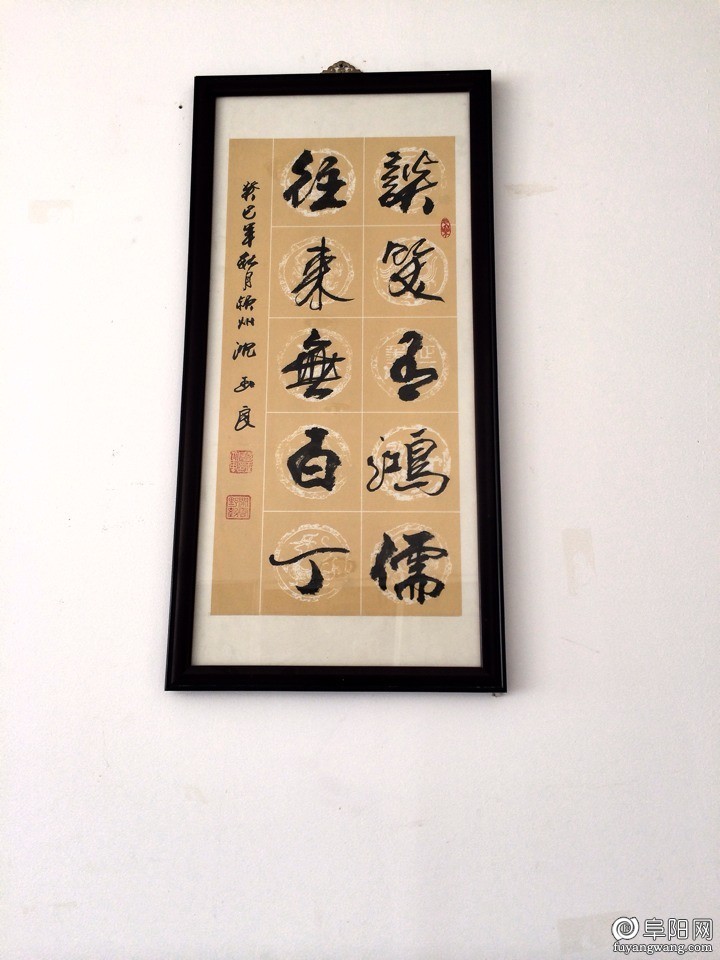 談笑有鴻儒
往来無白丁
癸巳年秋月颍州沈良
阜阳网
fuyangwang.com